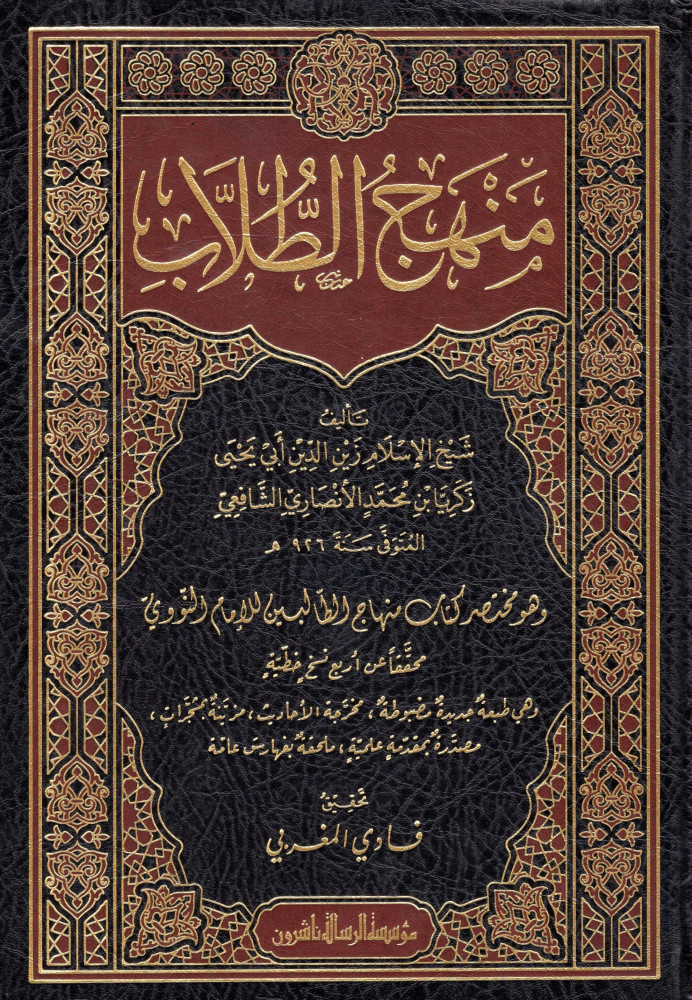 مَنْهَجُ الطُّلَّابِ
تأليف
شَيْخِ الإِسْلَامِ زَيْنِ الدِّيْنِ أَبِيْ يَحْيَى
زَكَرِيَّا بْنِ مُحَمَّدٍ الأَنْصَارِيِّ الشَّافِعِيِّ
المُتَوَفَّى سَنَةَ ٩٢٦ هـ
وهو مختصر كتاب منهاج الطالبين للإمام النووي
محققاً عن أربع نسخ خطيةٍ
وهي طبعةٌ جديدةٌ مضبوطةٌ، مخرجة الأحاديث، مزينةٌ بمشجراتٍ،
مصدّرةٌ بمقدمةٍ علميةٍ، ملحقةٌ بفهارس عامة
تحقيق
فادي المغربي
مؤسسة الرسالة ناشرون